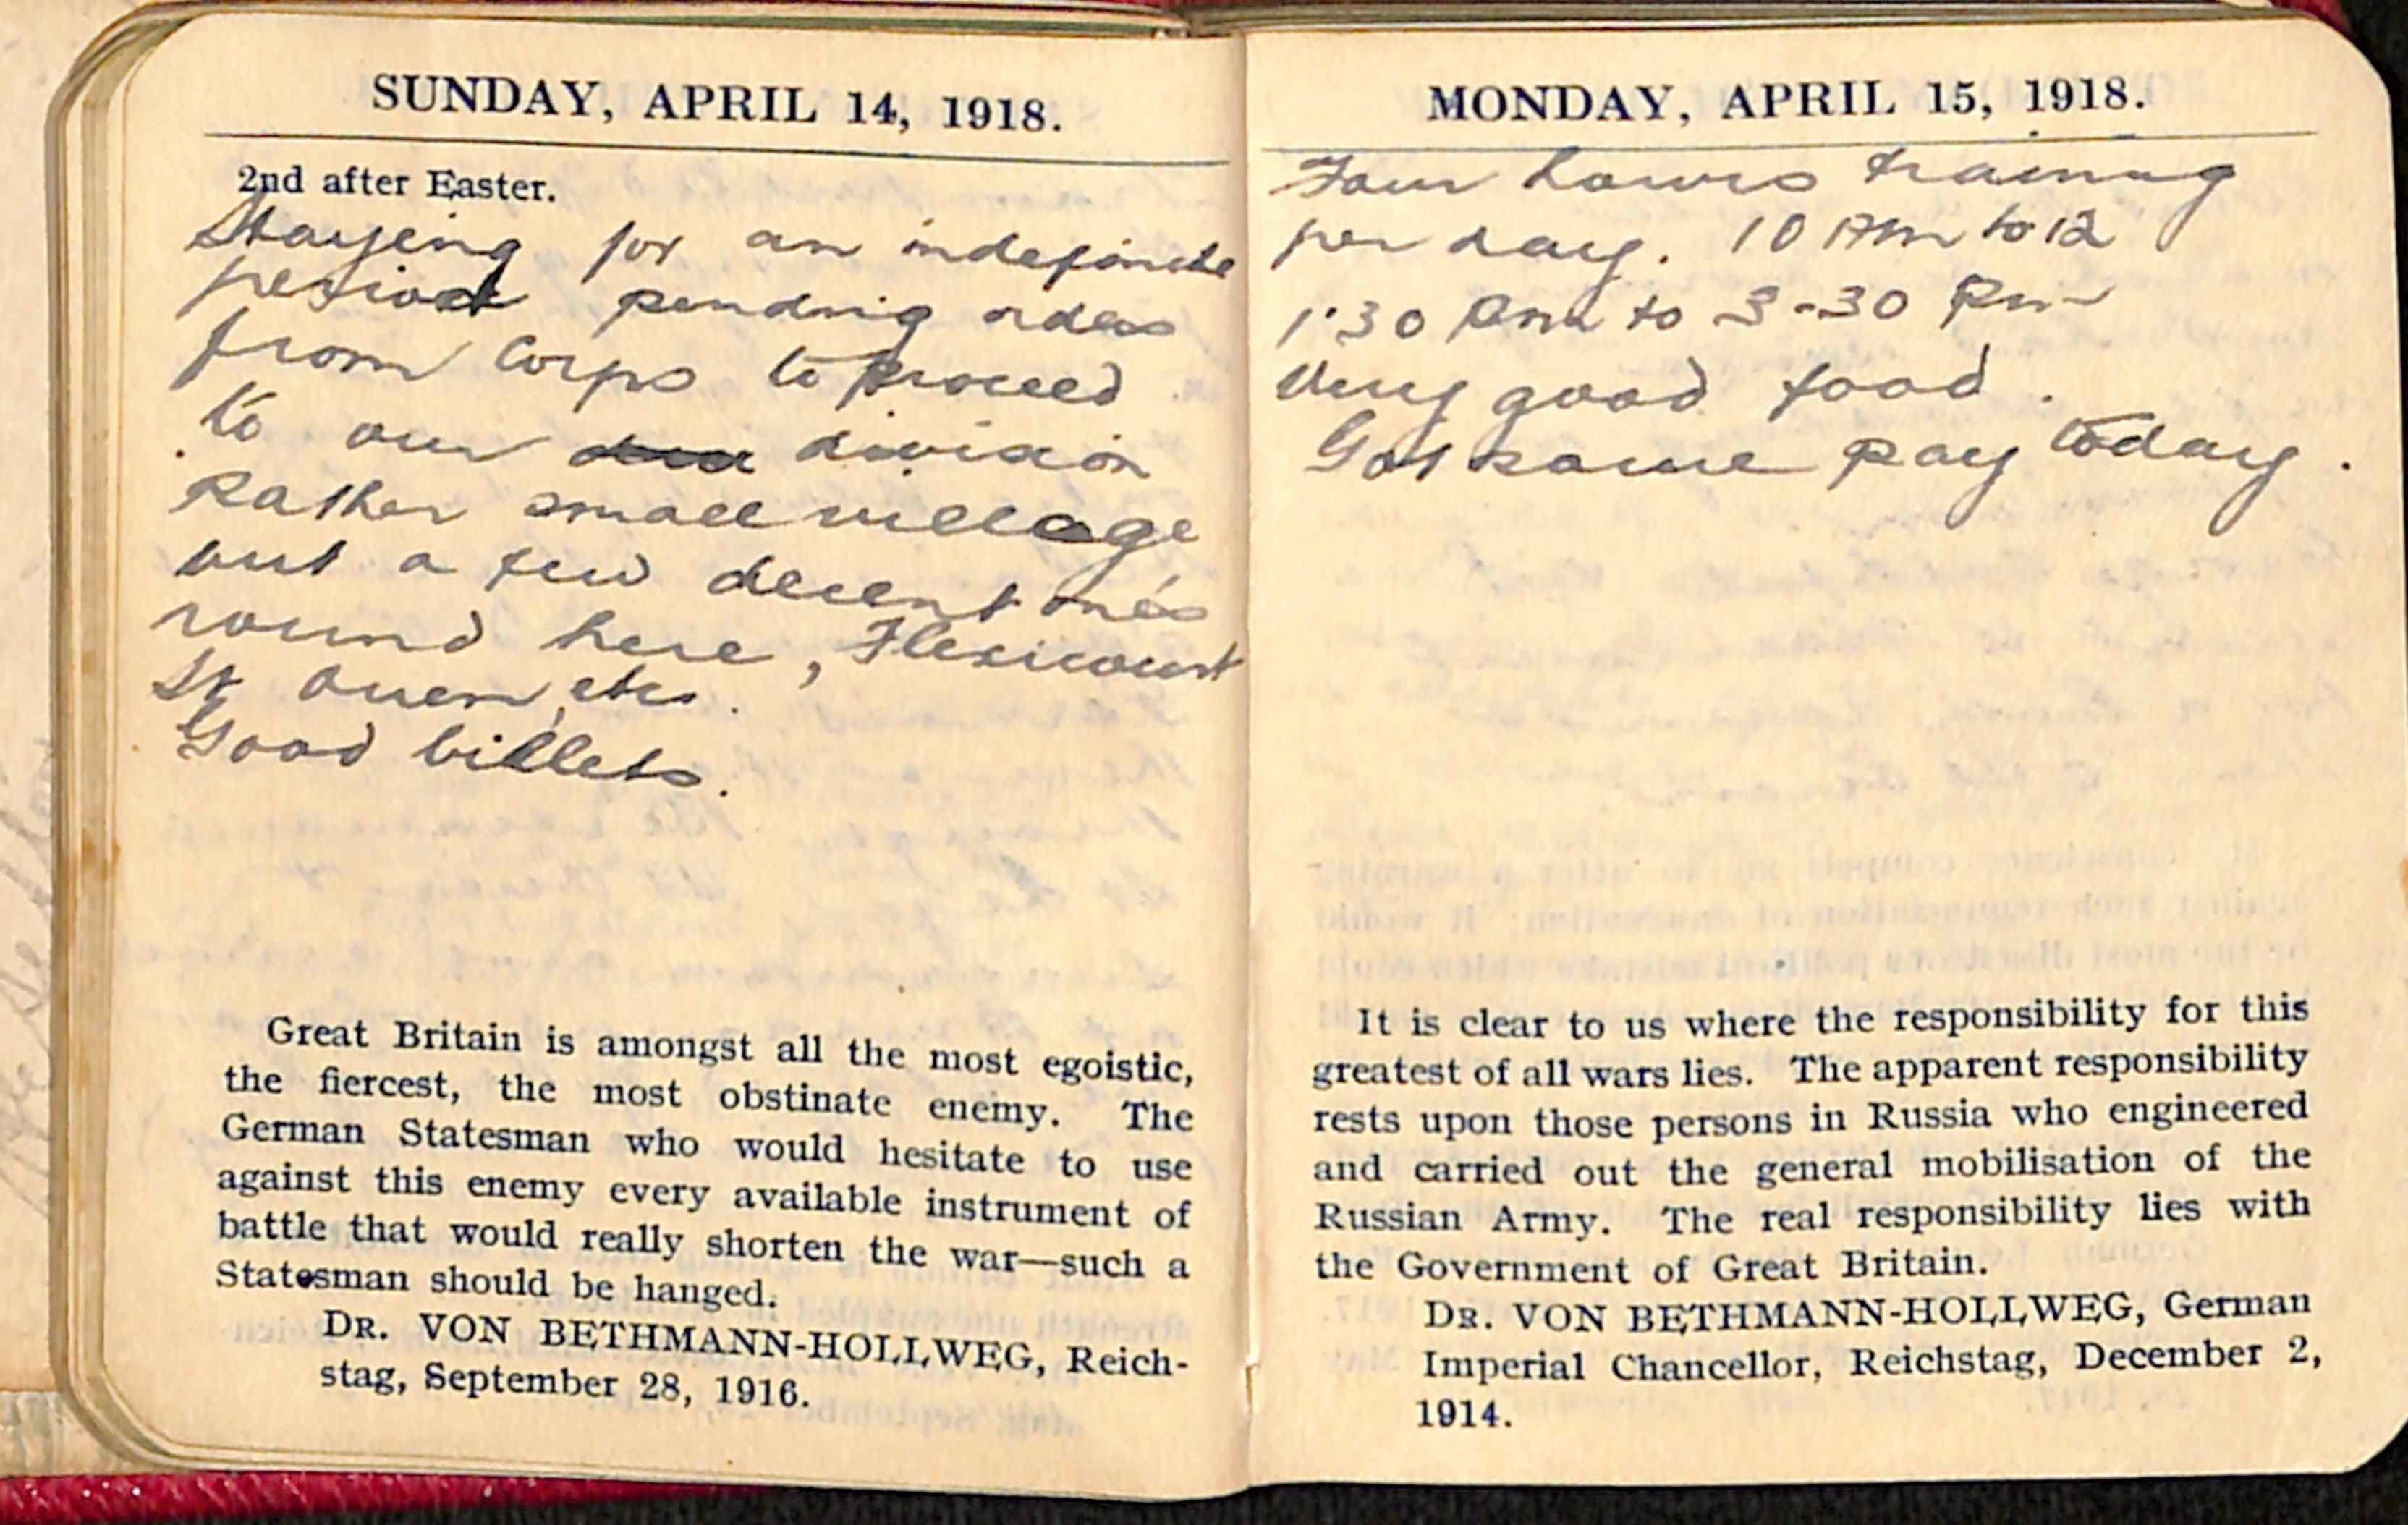 SUNDAY, APRIL 14, 1918.
2nd after Easter.
Staying for an indefinite
period pending orders
from Corps to proceed
to our division
Rather small village
but a few decent ones
round here, Flexicourt
St Ouen, etc.
Good billets.
Great Britain is amongst all the most egoistic,
the fiercest, the most obstinate enemy. The
German Statesman who would hesitate to use
against this enemy every available instrument of
battle that would really shorten the war—such a
Statesman should be hanged.
DR. VON BETHMANN-HOLLWEG, Reich-
stag, September 28, 1916.
MONDAY, APRIL 15, 1918.
Four hours training
per day. 10 AM to 12
1·30 Pm to 3-30 Pm
Very good food.
Got some pay today.
It is clear to us where the responsibility for this
greatest of all wars lies. The apparent responsibility
rests upon those persons in Russia who engineered
and carried out the general mobilisation of the
Russian Army. The real responsibility lies with
the Government of Great Britain.
DR. VON BETHMANN-HOLLWEG, German
Imperial Chancellor, Reichstag, December 2,
1914.